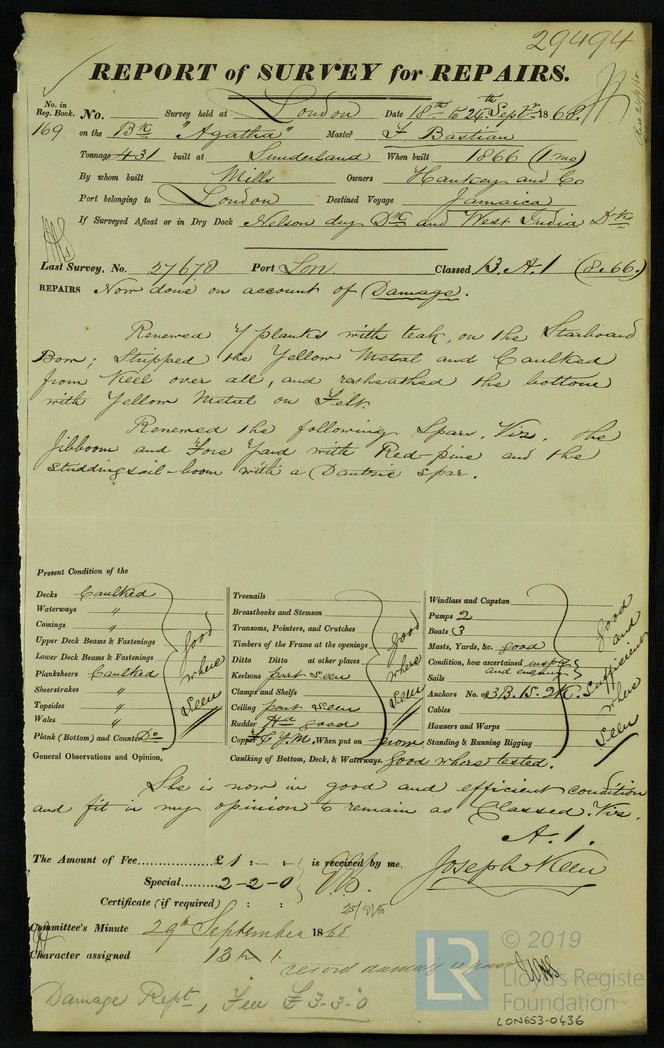 29494
REPORT of SURVEY for REPAIRS.
No. in Reg. Book. No. Survey held at London Date 18th to 24th Septr. 1868
169 on the Bk "Agatha" Master F Bastian
Tonnage 431 built at Sunderland When built 1866 (1 mo)
By whom built Mills Owners Hankey and Co
Port belonging to London Destined Voyage Jamaica
If Surveyed Afloat or in Dry Dock Nelson dry Dk and West India Dk
Last Survey, No. 27678 Port Lon. Classed B. A.1 (8.66.)
REPAIRS Now done on account of Damage.
Renewed 7 planks with teak, on the Starboard
Bow; Stripped the Yellow Metal and Caulked
from Keel over all, and resheathed the bottom
with Yellow Metal on Felt.
Renewed the following Spars. Viz. the
Jibboom and Fore Yard with Red-pine and the
Studdingsail-boom with a Dantzic spar.
Present Condition of the
Decks Caulked
Waterways "
Comings "
Upper Deck Beams & Fastenings
Lower Deck Beams & Fastenings
Planksheers Caulked
Sheerstrakes "
Topsides "
Wales "
Plank (Bottom) and Counter Do
good where Seen
Treenails
Breasthooks and Stemson
Transoms, Pointers, and Crutches
Timbers of the Frame at the openings
Ditto Ditto at other places
Keelsons part Seen
Clamps and Shelfs
Ceiling part Seen
Rudder good
Copper Y.M. When put on now
good where Seen
Windlass and Capstan
Pumps 2
Boats 3
Masts, Yards, &c. good
Condition, how ascertained
Sails
Anchors No. of 3 B. 1 S. 2 K.
Cables
Hawsers and Warps
Standing & Running Rigging
good and Sufficient where Seen
General Observations and Opinion, Caulking of Bottom, Deck, & Waterways. Good where tested.
She is now in good and efficient condition
and fit in my opinion to remain as Classed. Viz.
A.1.
The Amount of Fee £ 1 : - : is received by me,
Special 2-2-0
Joseph Keen
Certificate (if required) : :
Committee's Minute 29th September 1868
Character assigned B A 1.
record damage repairs
Damage Rept, Fee £ 3-3-0
LR
© 2019
Lloyd's Register
Foundation
LON653-0436